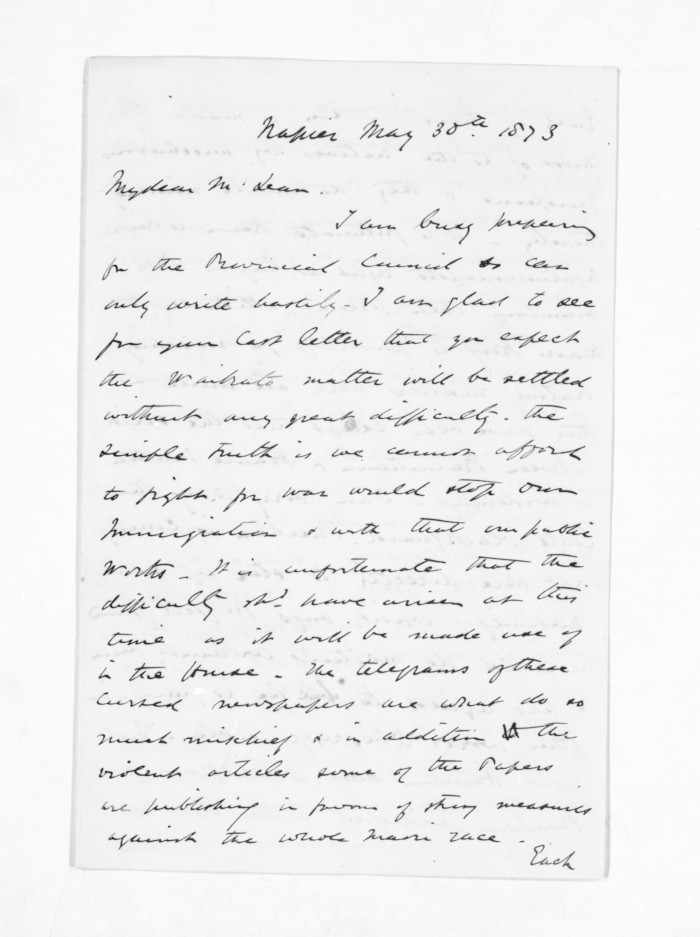 Napier May 30th. 1873
My dear McLean.
I am busy preparing
for the Provincial Council & can
only write hastily. I am glad to see
from your last letter that you expect
the Waikato matter will be settled
without any great difficulty. The
simple truth is we cannot afford
to fight, for war would stop our
Immigration & with that our public
Works - It is unfortunate that the
difficulty shd. have arisen at this
time as it will be made use of
in the House - The telegrams of these
cursed newspapers are what do so
much mischief & in addition the
violent articles some of the Papers
are publishing in favour of strong measures
against the whole Maori race -
Each